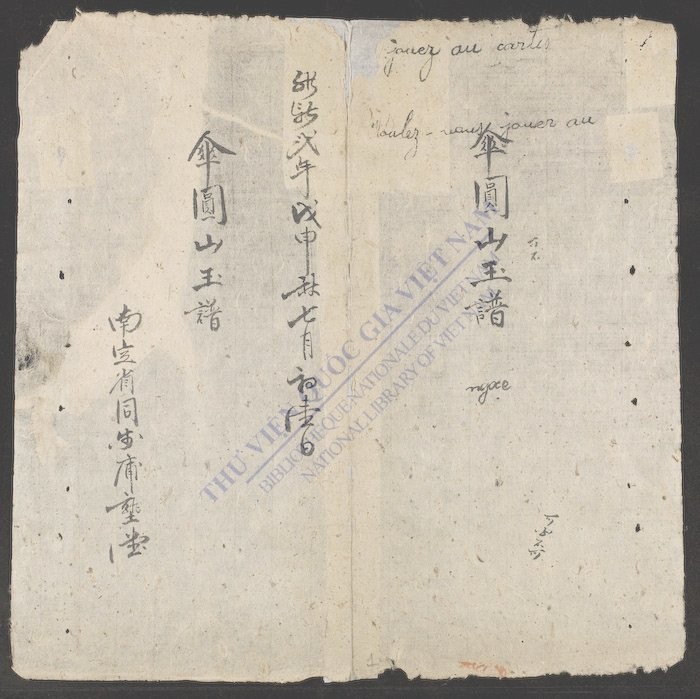 jouez au cartes
Voulez-vous jouer au
傘圓山玉譜
維新弍年戊申秋七月初陸日
傘圓山玉譜
南定省同
THƯ VIỆN QUỐC GIA VIỆT NAM
BIBLIOTHEQUE NATIONALE DU VIET NAM
NATIONAL LIBRARY OF VIET NAM